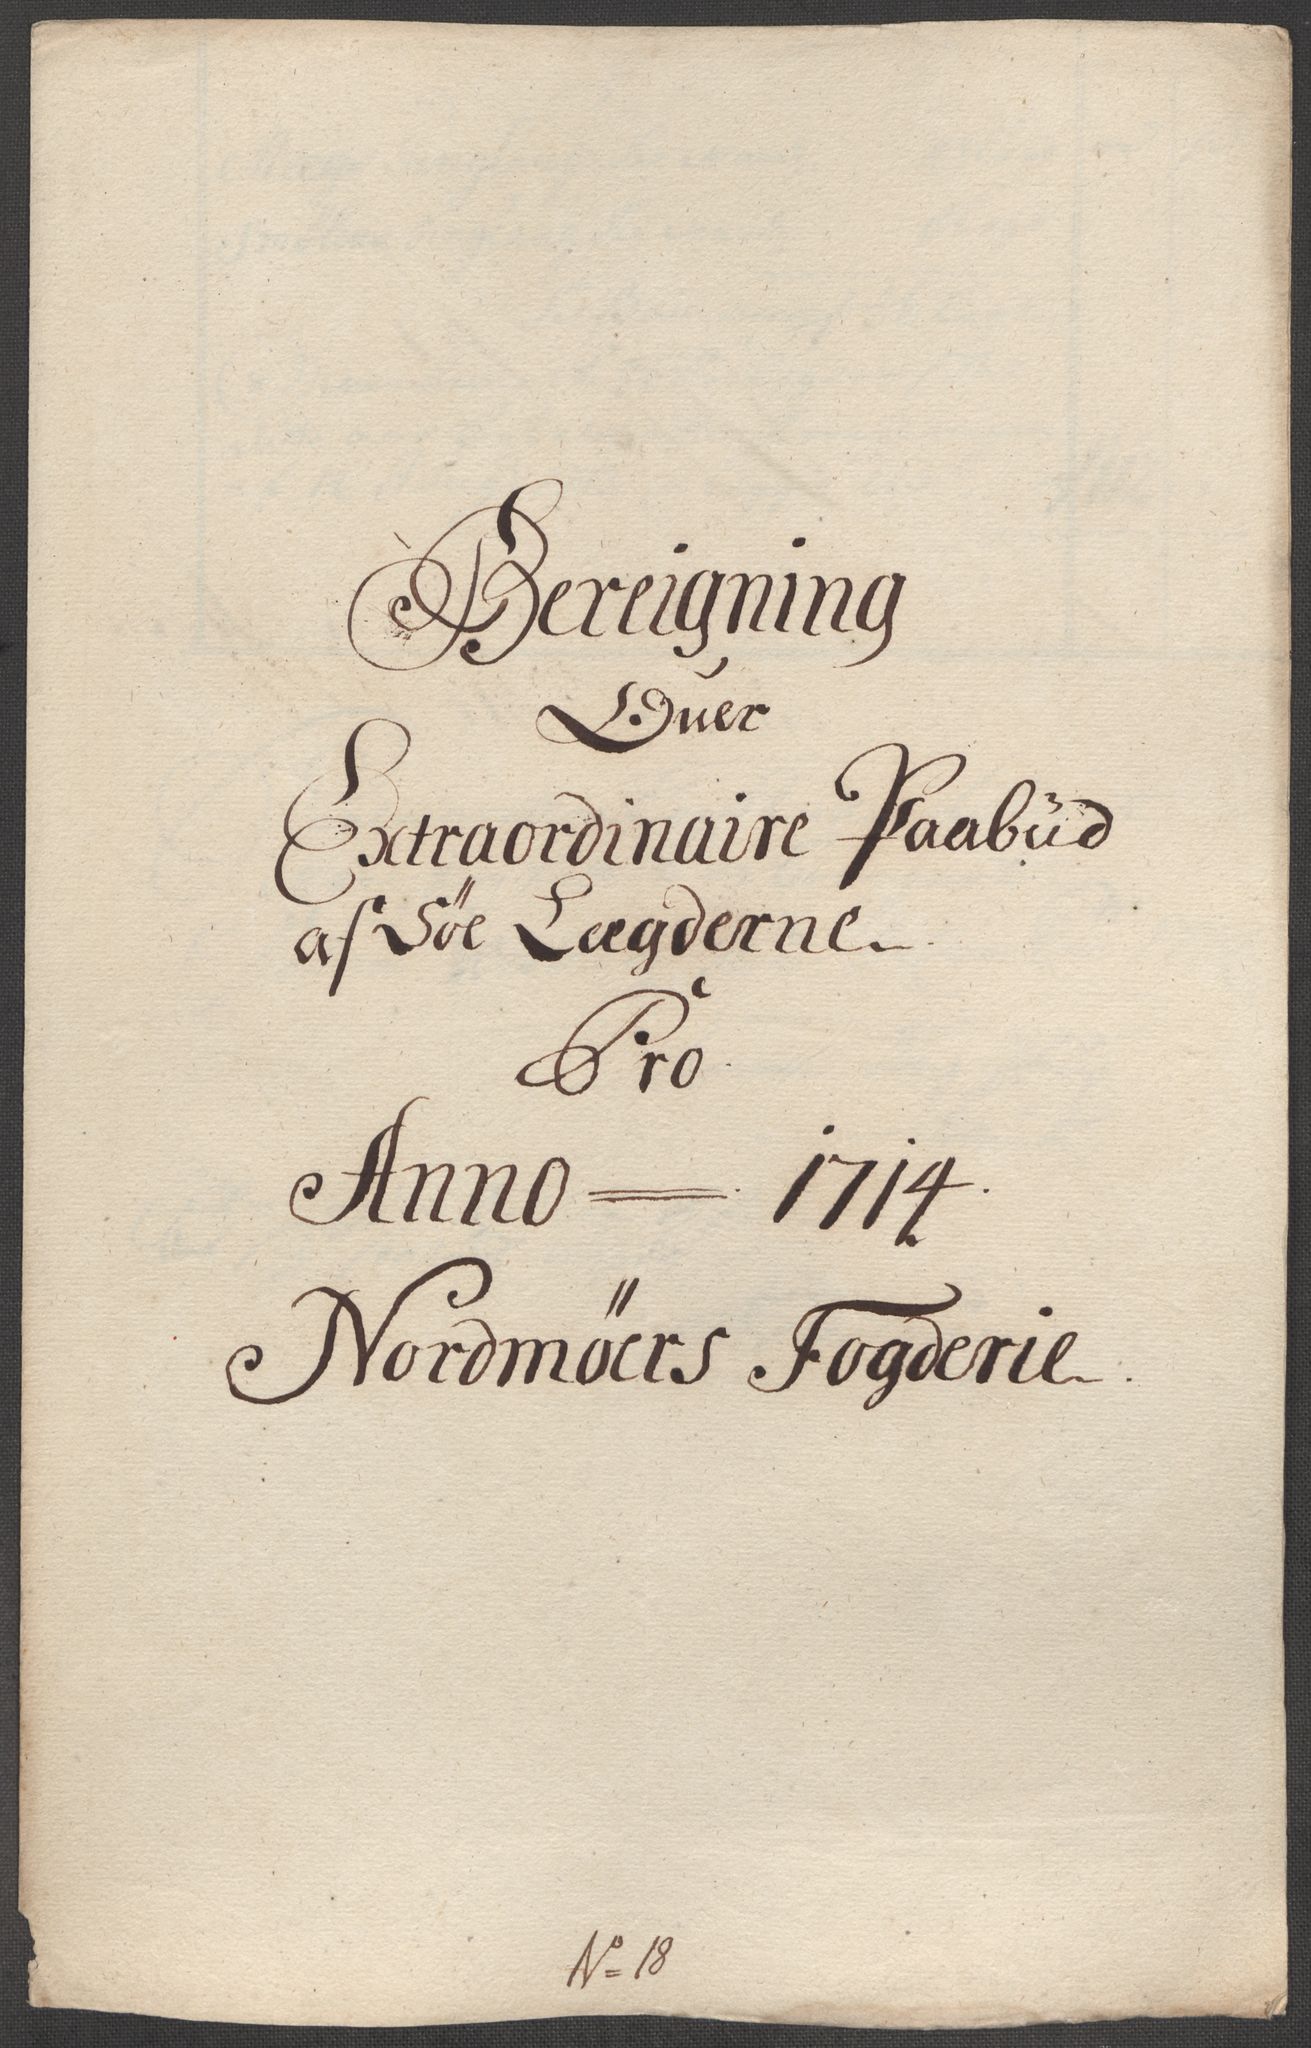 Bereigning
Over
Extraordinaire Paabud
af Söe Lægderne
Pro
Anno — 1714.
Nordmöers Fogderie.
No 18